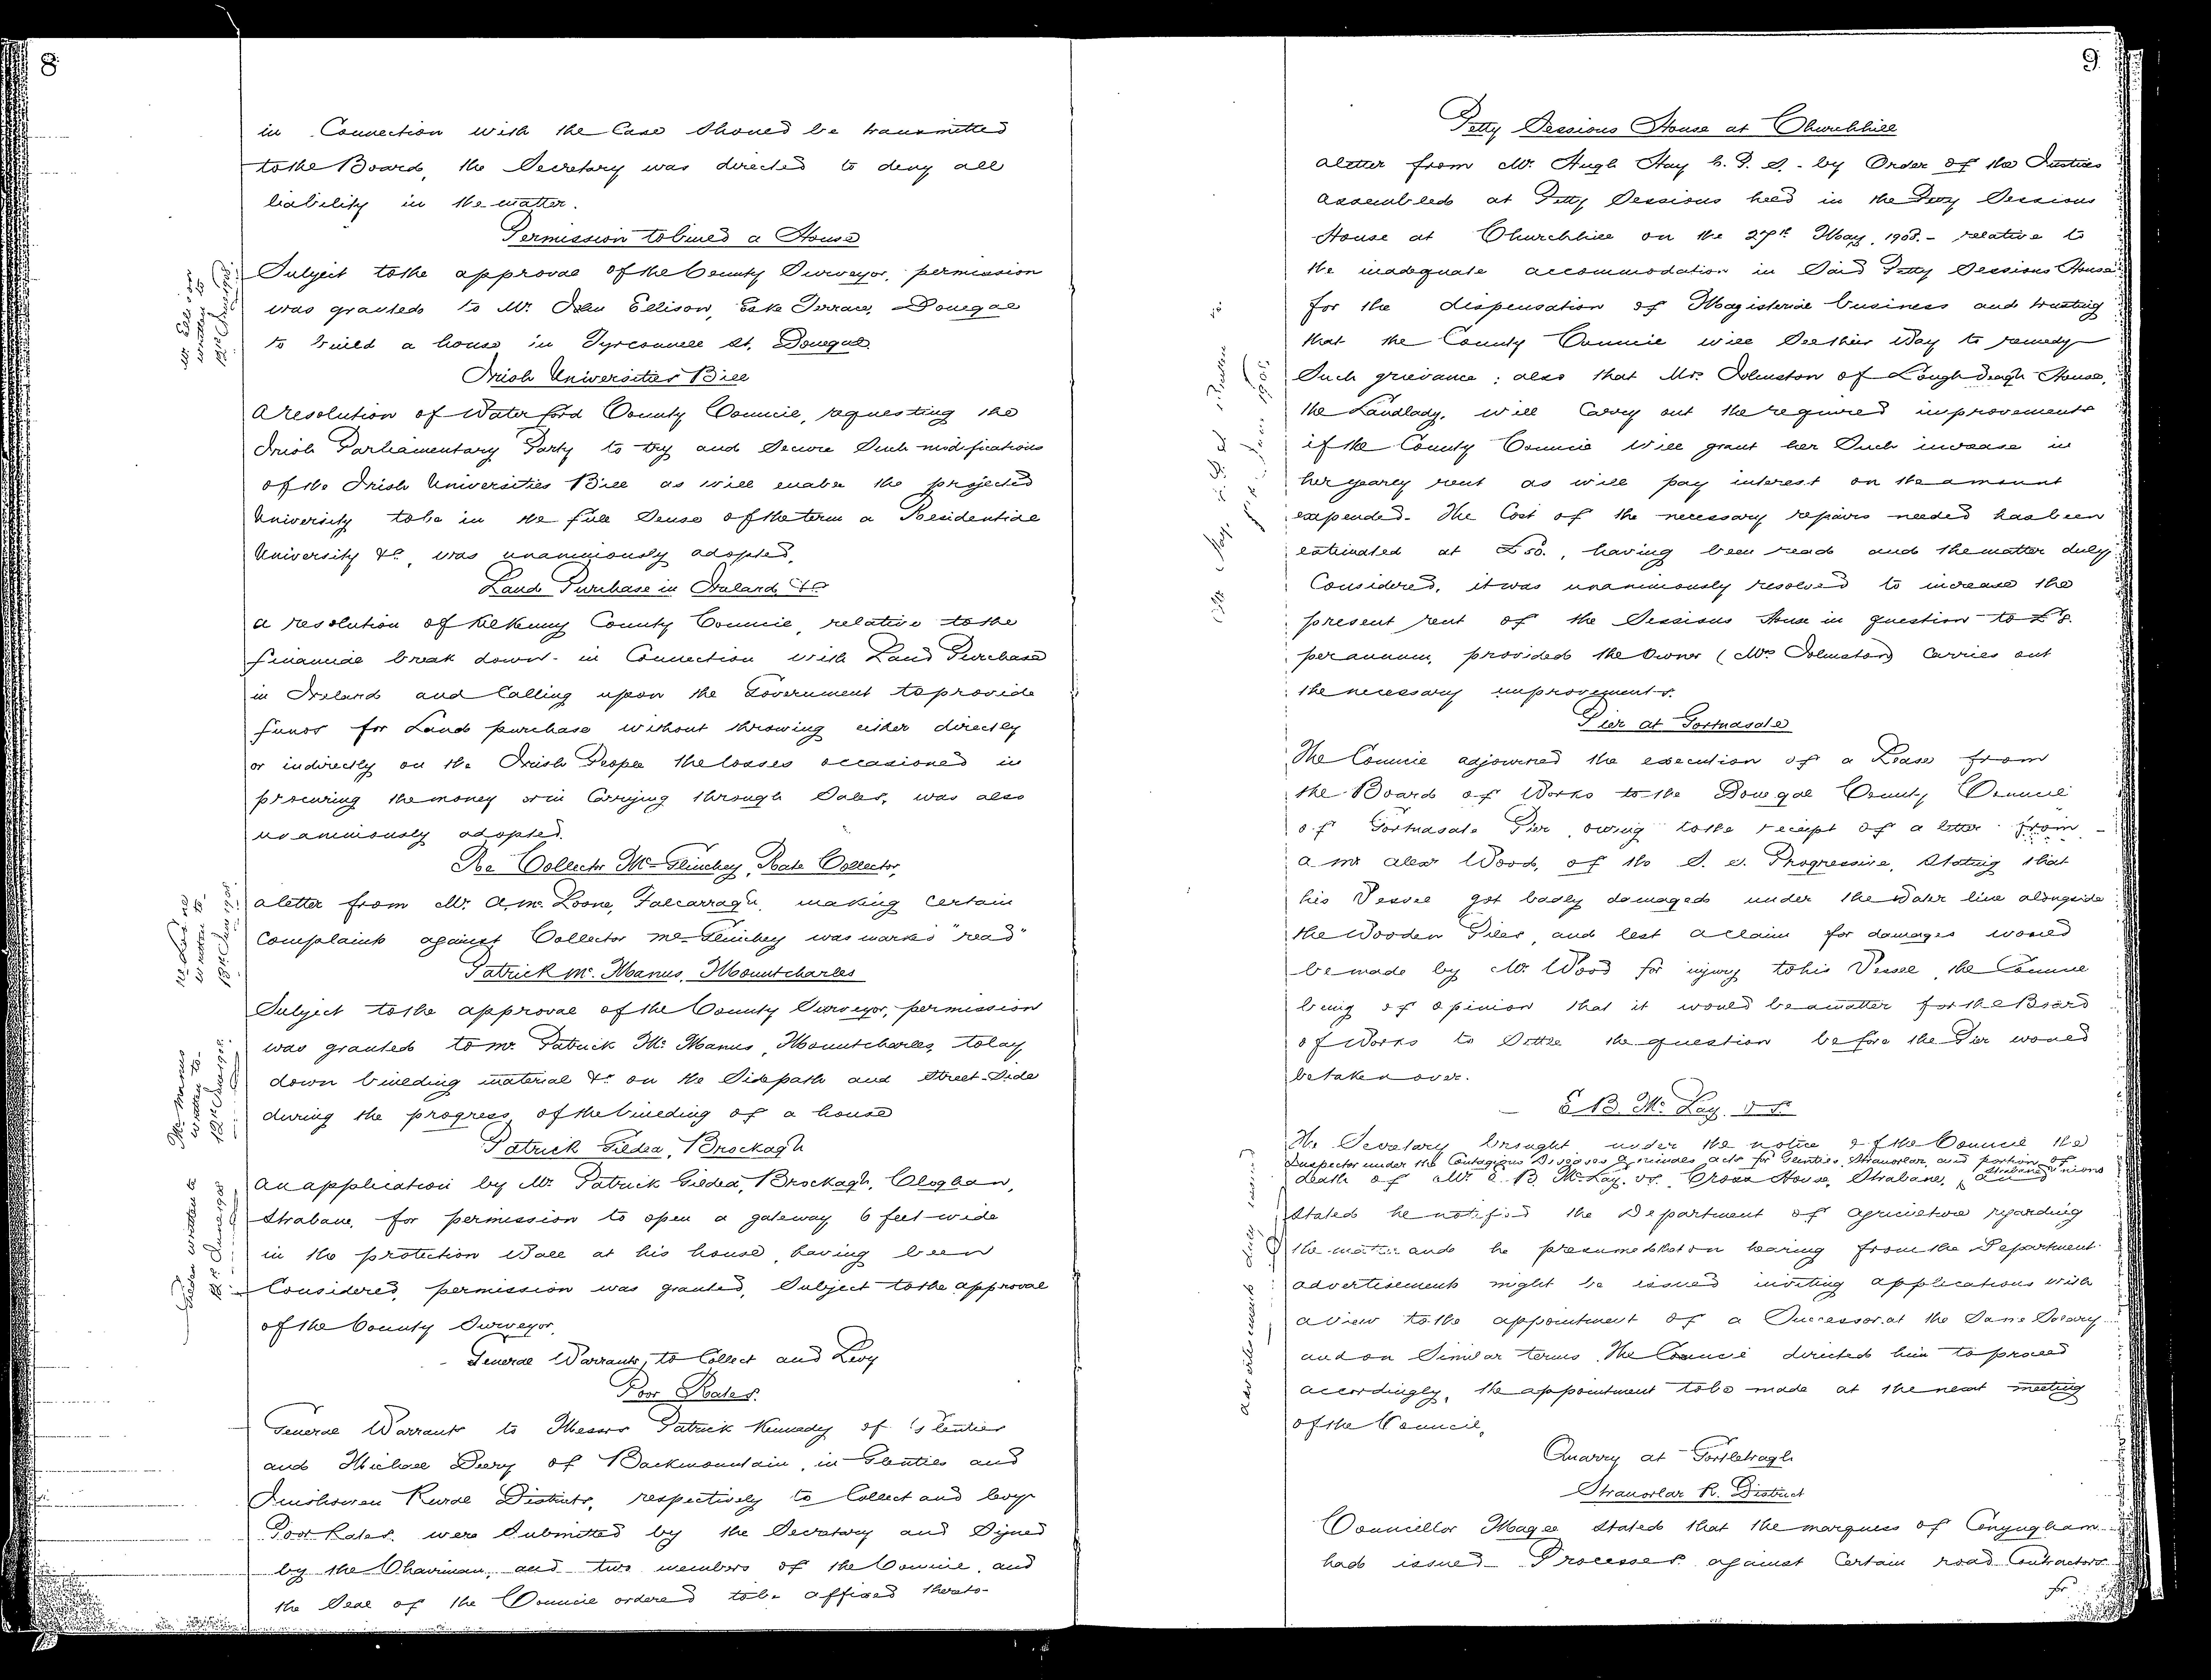 8
in Connection with the Case should be transmitted
to the Board, the Secretary was directed to deny all
liability in the matter.
Permission to build a House
Mr Ellison
written to
12th June 1908
Subject to the approval of the County Surveyor, permission
was granted to Mr. John Ellison, Eske Terrace, Donegal
to build a house in Tyrconnell St. Donegal.
Irish Universities Bill
A resolution of Waterford County Council, requesting the
Irish Parliamentary Party to try and Secure Such modifications
of the Irish Universities Bill as will enable the projected
University to be in the full Sense of the term a Residential
University &c, was unanimously adopted.
Land Purchase in Ireland &c
A resolution of Kilkenny County Council, relative to the
financial break down in Connection with Land Purchase
in Ireland and Calling upon the Government to provide
funds for Land purchase without throwing either directly
or indirectly on the Irish People the losses occasioned in
procuring the money or in Carrying through Sales, was also
unanimously adopted.
Re Collector McGlinchey, Rate Collector,
written to
12th June 1908
a letter from Mr. A. Mc Loone, Falcarragh, making certain
Complaints against Collector McGlinchey was marked "read"
Patrick Mc. Manus, Mountcharles
Mc Manus
written to
12th June 1908
Subject to the approval of the County Surveyor, permission
was granted to Mr. Patrick Mc Manus, Mountcharles, to lay
down building material &c on the Sidepath and Street-Side
during the progress of the building of a house
Patrick Gildea, Brockagh
Gildea written to
12th June 1908
An application by Mr. Patrick Gildea, Brockagh, Cloghan,
Strabane, for permission to open a gateway 6 feet wide
in the protection Wall at his house, having been
Considered, permission was granted, Subject to the approval
of the County Surveyor.
General Warrants, to Collect and Levy
Poor Rates.
General Warrants to Messrs Patrick Kennedy of Glenties
and Michael Deery of Backmountain, in Glenties and
Inishowen Rural Districts, respectively to Collect and levy
Poor Rates, were Submitted by the Secretary and Signed
by the Chairman, and two members of the Council, and
the Seal of the Council ordered to be affixed thereto
9
Petty Sessions House at Churchhill
a letter from Mr. Hugh Hay C. P. S. - by Order of the Justices
assembled at Petty Sessions held in the Petty Sessions
House at Churchhill on the 27th May, 1908 - relative to
the inadequate accommodation in Said Petty Sessions House
for the dispensation of Magisterial business and trusting
that the County Council will See their Way to remedy
Such grievance; also that Mrs. Johnston of Lough Veagh House,
the Landlady, will Carry out the required improvements
if the County Council will grant her Such increase in
her yearly rent as will pay interest on the amount
expended. The Cost of the necessary repairs needed has been
estimated at £50., having been read and the matter duly
Considered, it was unanimously resolved to increase the
present rent of the Sessions House in question to £8
per annum, provided the Owner (Mrs Johnston) Carries out
the necessary improvements.
Pier at Gortnasate
The Council adjourned the execution of a Lease from
the Board of Works to the Donegal County Council
of Gortnasate Pier, owing to the receipt of a letter from
a Mr Alexr Wood, of the S. S. Progressive, Stating that
his Vessel got badly damaged under the Water line alongside
the Wooden Piles, and lest a claim for damages would
be made by Mr. Wood for injury to his Vessel, the Council
being of opinion that it would be a matter for the Board
of Works to Settle the question before the Pier would
be taken over.
E B. Mc Lay. V S.
advertisement duly issued
The Secretary brought under the notice of the Council the
Inspector under the Contagious Diseases Animals acts for Glenties, Stranorlar, and portion of
Strabane Unions
death of Mr. E. B. McLay. VS. Cross House, Strabane, and
Stated he notified the Department of Agriculture regarding
the matter and he presumed that on hearing from the Department
advertisements might be issued inviting applications with
a view to the appointment of a Successor at the Same Salary
and on Similar terms. The Council directed him to proceed
accordingly, the appointment to be made at the next meeting
of the Council.
Quarry at Gortletragh
Stranorlar R. District
Councillor Magee Stated that the Marquess of Conyngham
had issued Processes against Certain road Contractors
for